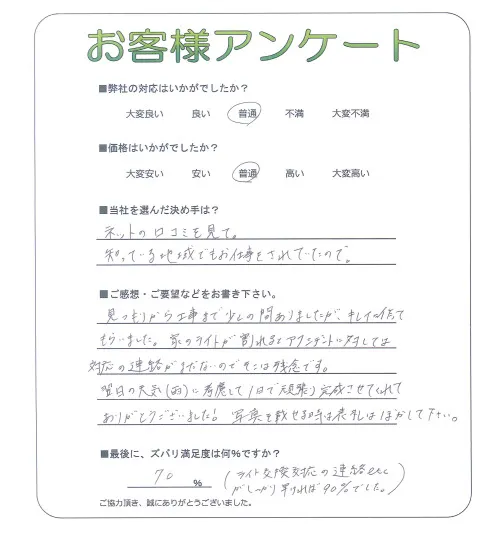 お客様アンケート
■弊社の対応はいかがでしたか？
大変良い 良い 普通 不満 大変不満
■価格はいかがでしたか？
大変安い 安い 普通 高い 大変高い
■当社を選んだ決め手は？
ネットの口コミを見て。
知っている地域でもお仕事をされていたので。
■ご感想・ご要望などをお書き下さい。
見つもりから工事まで少しの間ありましたが、キレイに仕て
もらいました。家のライトが割れるとアクシデントに対しては
対応の連絡がまだないのでそこは残念です。
翌日の天気(雨)に考慮して1日で頑張り完成させてくれて
ありがとうございました! 写真を載せる時は表札はぼかして下さい。
■最後に、ズバリ満足度は何％ですか？
70 %
(ライト交換対応の連絡etc
がしっかり早ければ90%でした。)
ご協力頂き、誠にありがとうございました。